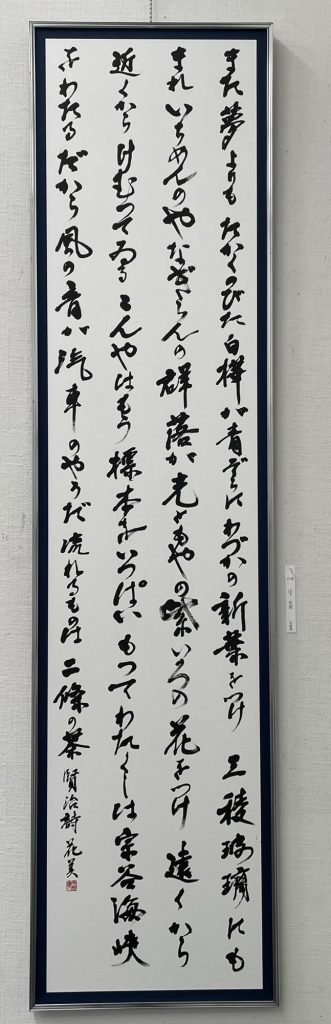 また夢よりもたかくのびた白樺が青ぞらにわづかの新葉をつけ三稜玻璃にも
まれいちめんのやなぎらんの群落が光ともやの紫いろの花をつけ遠くから
近くからけむつてゐるこんやはもう標本をいつぱいもつてわたくしは宗谷海峡
をわたるだから風の音が汽車のやうだ流れるものは二條の茶 賢治詩 花美